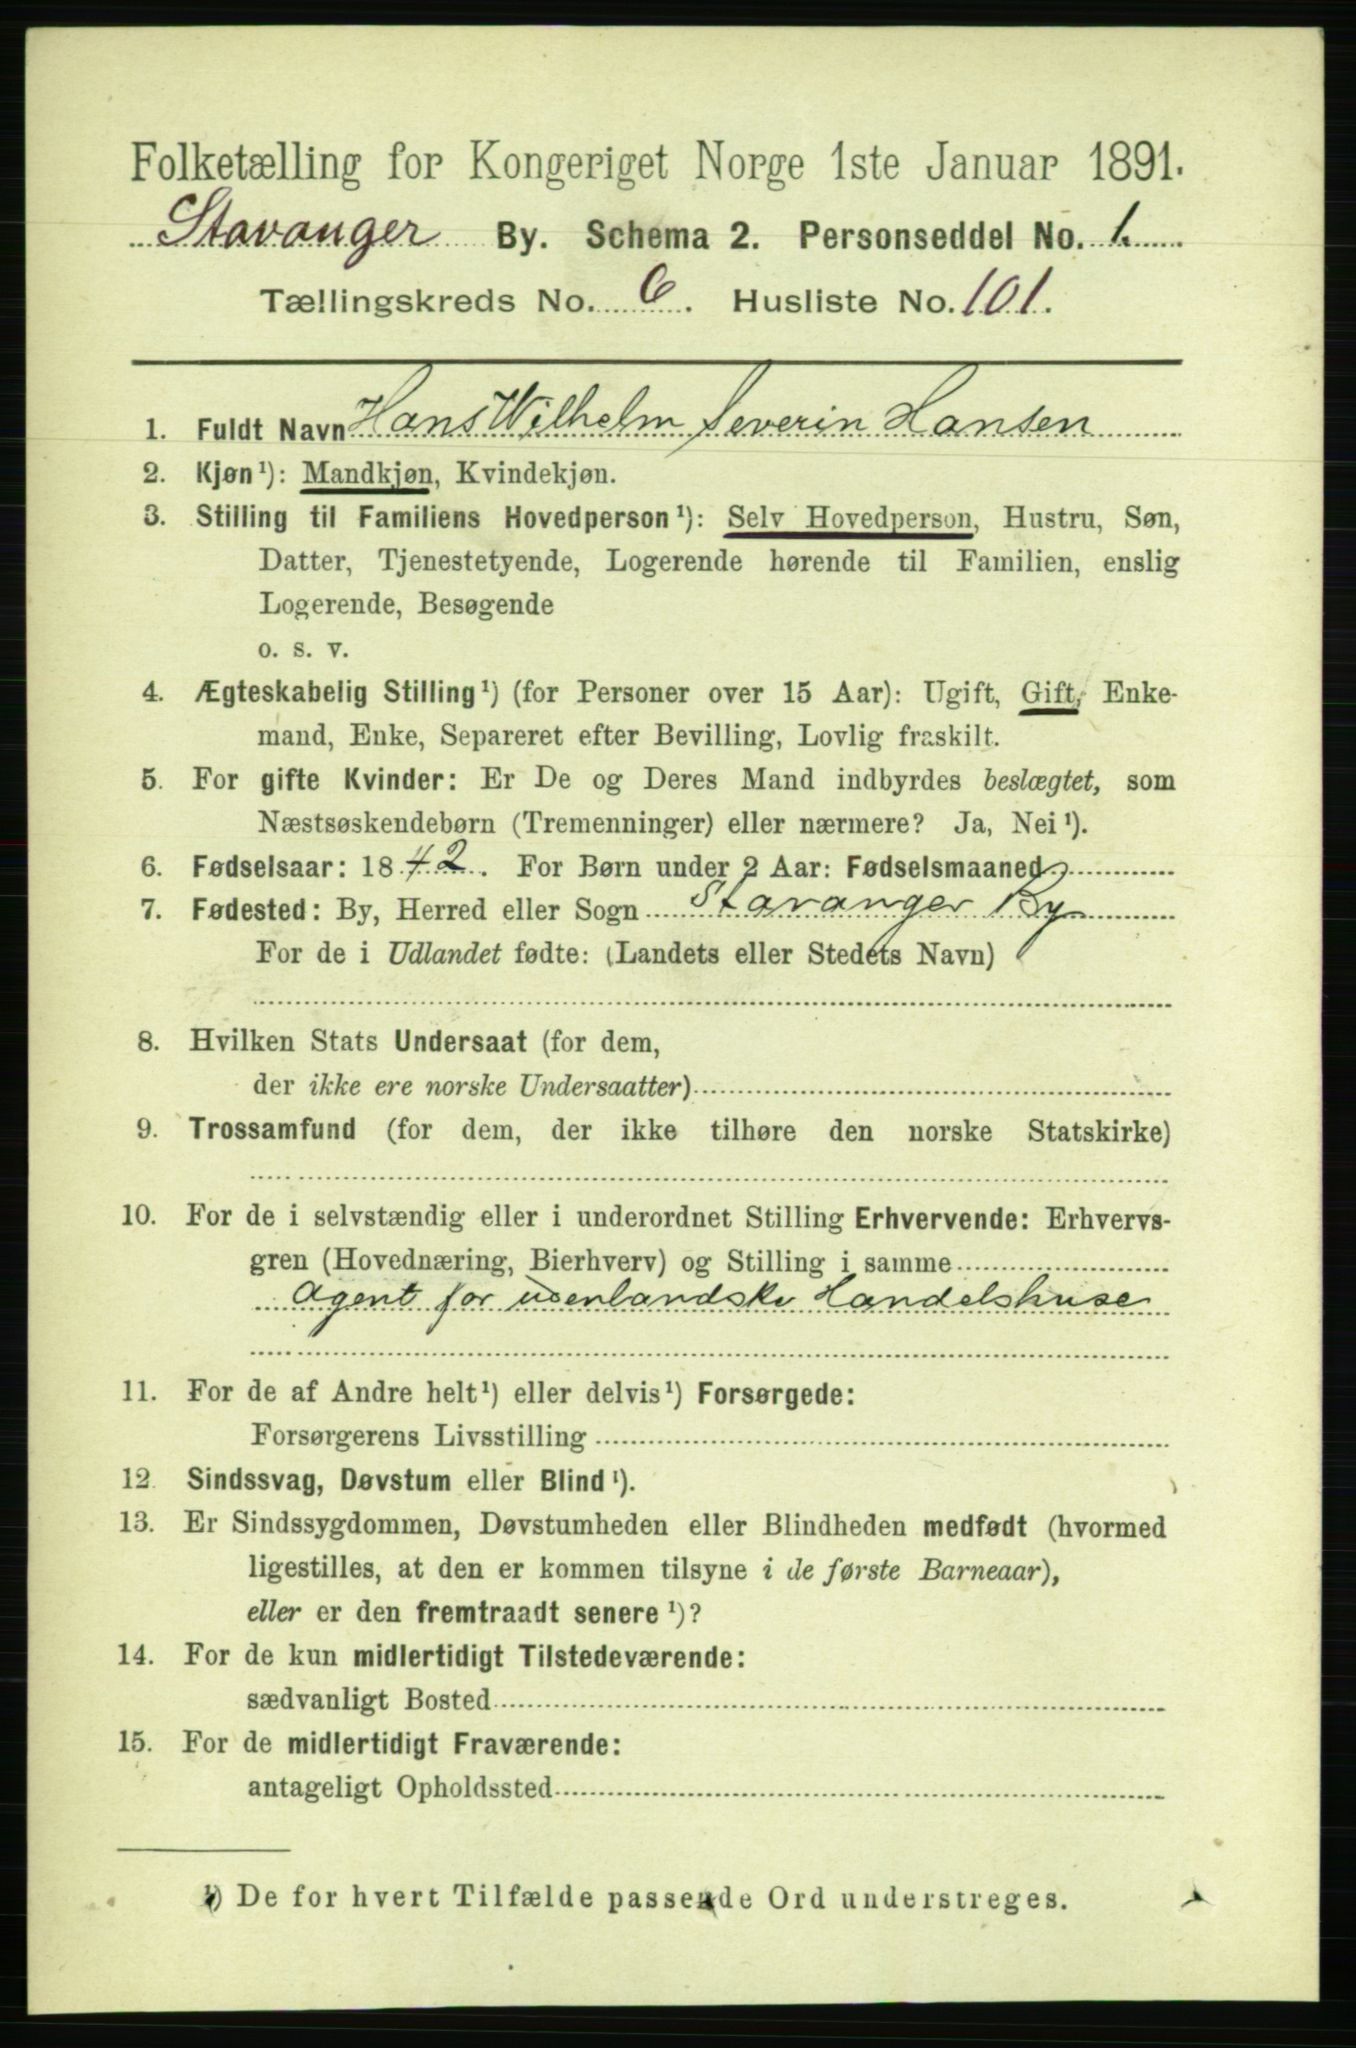 Folketælling for Kongeriget Norge 1ste Januar 1891.
Stavanger By. Schema 2. Personseddel No. 1.
Tællingskreds No. 6. Husliste No. 101.
1. Fuldt Navn Hans Wilhelm Severin Hansen
2. Kjøn ¹): Mandkjøn, Kvindekjøn.
3. Stilling til Familiens Hovedperson ¹): Selv Hovedperson, Hustru, Søn,
Datter, Tjenestetyende, Logerende hørende til Familien, enslig
Logerende, Besøgende
o. s. v.
4. Ægteskabelig Stilling ¹) (for Personer over 15 Aar): Ugift, Gift, Enke-
mand, Enke, Separeret efter Bevilling, Lovlig fraskilt.
5. For gifte Kvinder: Er De og Deres Mand indbyrdes beslægtet, som
Næstsøskendebørn (Tremenninger) eller nærmere? Ja, Nei ¹).
6. Fødselsaar: 1842. For Børn under 2 Aar: Fødselsmaaned
7. Fødested: By, Herred eller Sogn Stavanger By
For de i Udlandet fødte: (Landets eller Stedets Navn)
8. Hvilken Stats Undersaat (for dem,
der ikke ere norske Undersaatter)
9. Trossamfund (for dem, der ikke tilhøre den norske Statskirke)
10. For de i selvstændig eller i underordnet Stilling Erhvervende: Erhvervs-
gren (Hovednæring, Bierhverv) og Stilling i samme
Agent for udenlandske Handelshuse
11. For de af Andre helt ¹) eller delvis ¹) Forsørgede:
Forsørgerens Livsstilling
12. Sindssvag, Døvstum eller Blind ¹).
13. Er Sindssygdommen, Døvstumheden eller Blindheden medfødt (hvormed
ligestilles, at den er kommen tilsyne i de første Barneaar),
eller er den fremtraadt senere ¹)?
14. For de kun midlertidigt Tilstedeværende:
sædvanligt Bosted
15. For de midlertidigt Fraværende:
antageligt Opholdssted
¹) De for hvert Tilfælde passende Ord understreges.